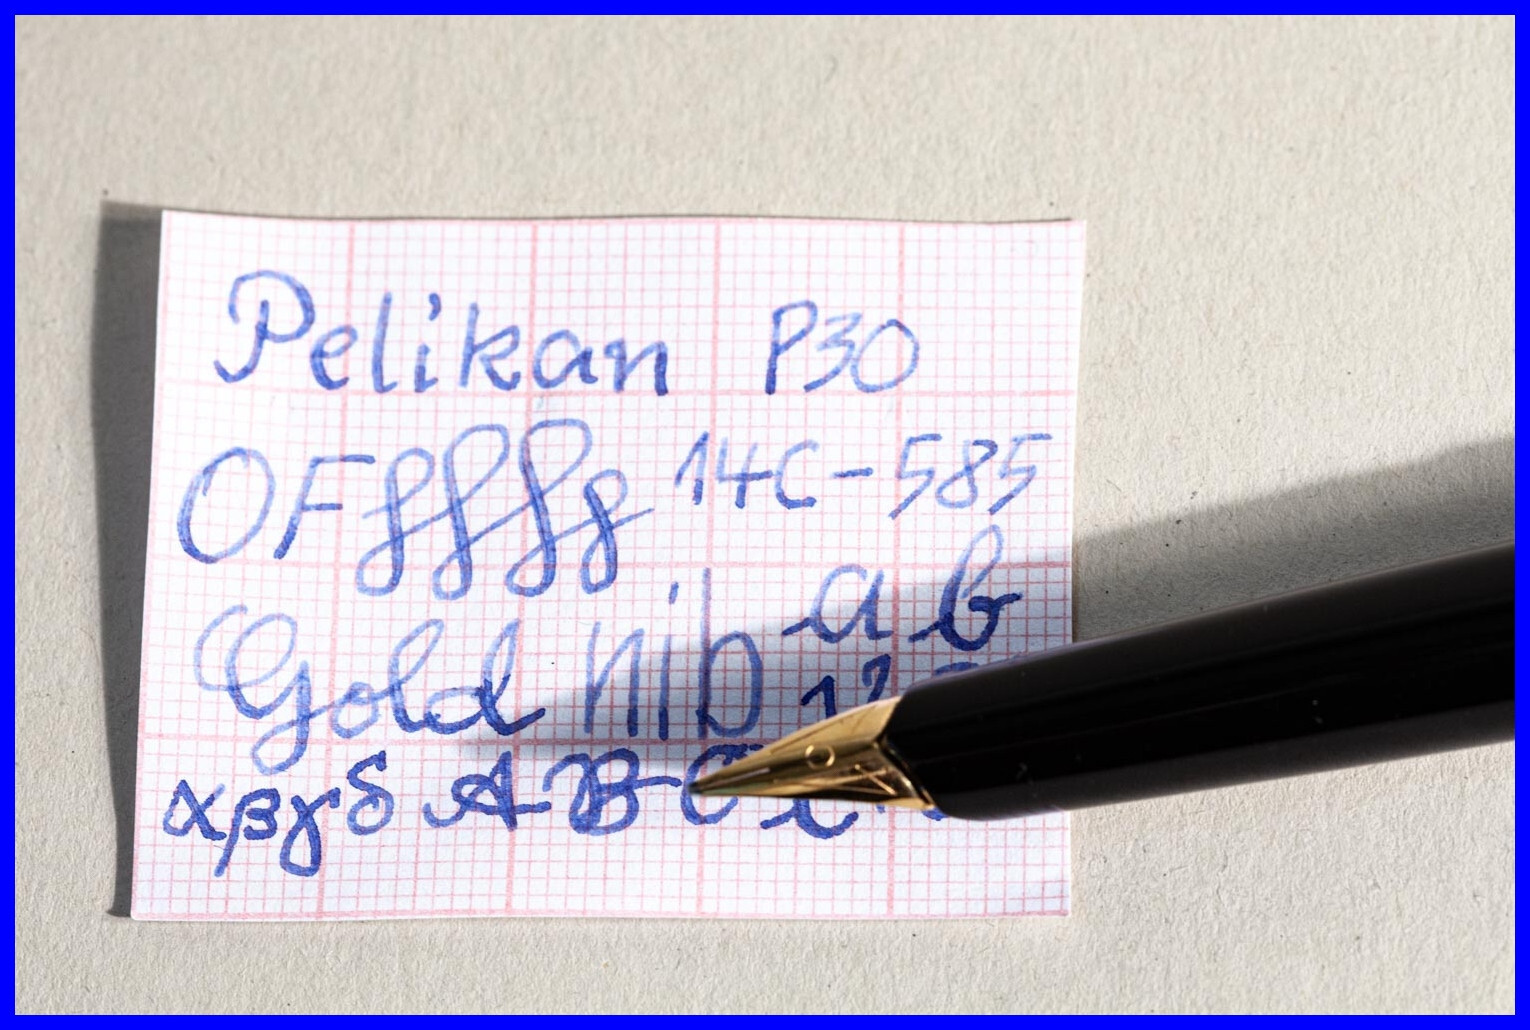 Pelikan P30
OFffff 14C-585
Gold nib a b
αβγδ A B C